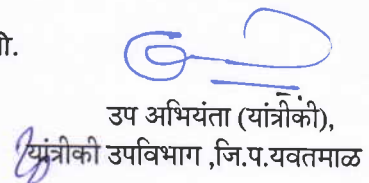 ी.
उप अभियंता (यांत्रीकी),
यांत्रीकी उपविभाग ,जि.प.यवतमाळ